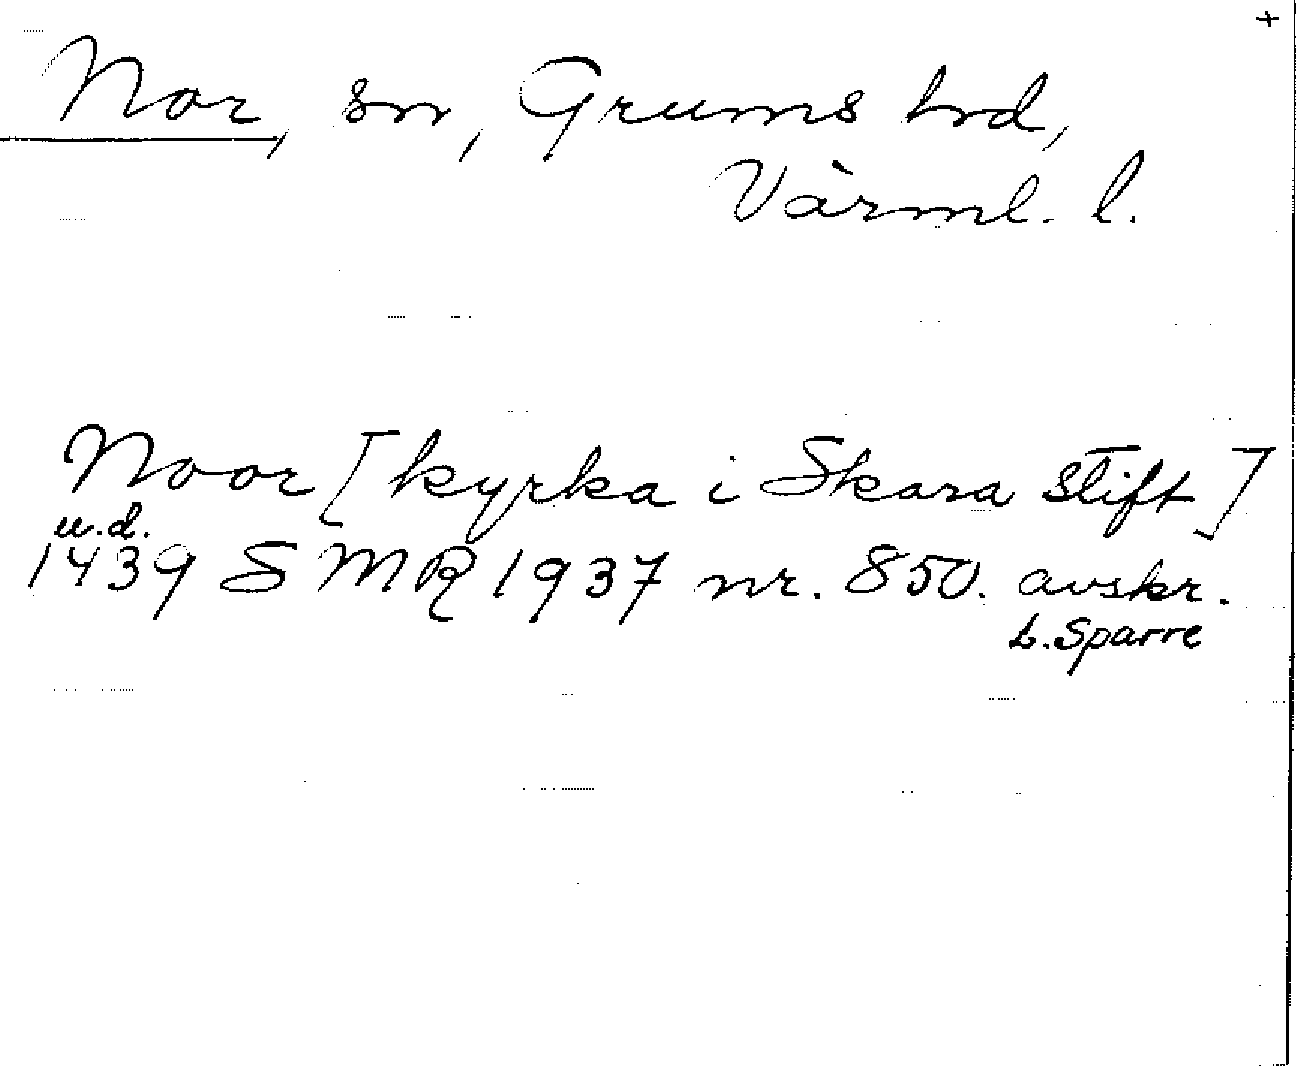 +
Nor, sn, Grums hrd,
Värml. l.
Noor [kyrka i Skara Stift]
u.d.
1439 SMR 1937 nr. 850. avskr.
L. Sparre